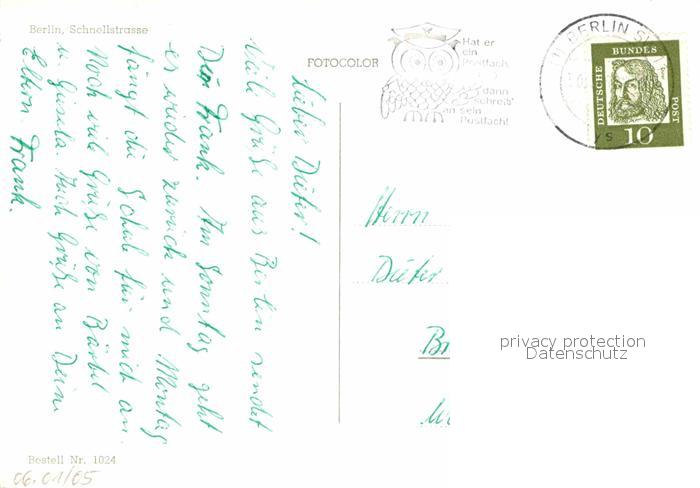 Berlin, Schnellstrasse
Lieber Dieter!
Viele Grüße aus Berlin sendet
Dir Frank. Am Sonntag geht
es wieder zurück und Montag
fängt die Schule für mich an.
Noch viele Grüße von Bärbel
u. Gisela. Auch Grüße an Deine
Eltern. Frank.
FOTOCOLOR
Hat er
ein
Postfach,
dann
schreib'
an sein
Postfach!
BERLIN
DEUTSCHE
BUNDES
POST
10
Herrn
Dieter
privacy protection
Datenschutz
Bestell Nr. 1024
06.01/05